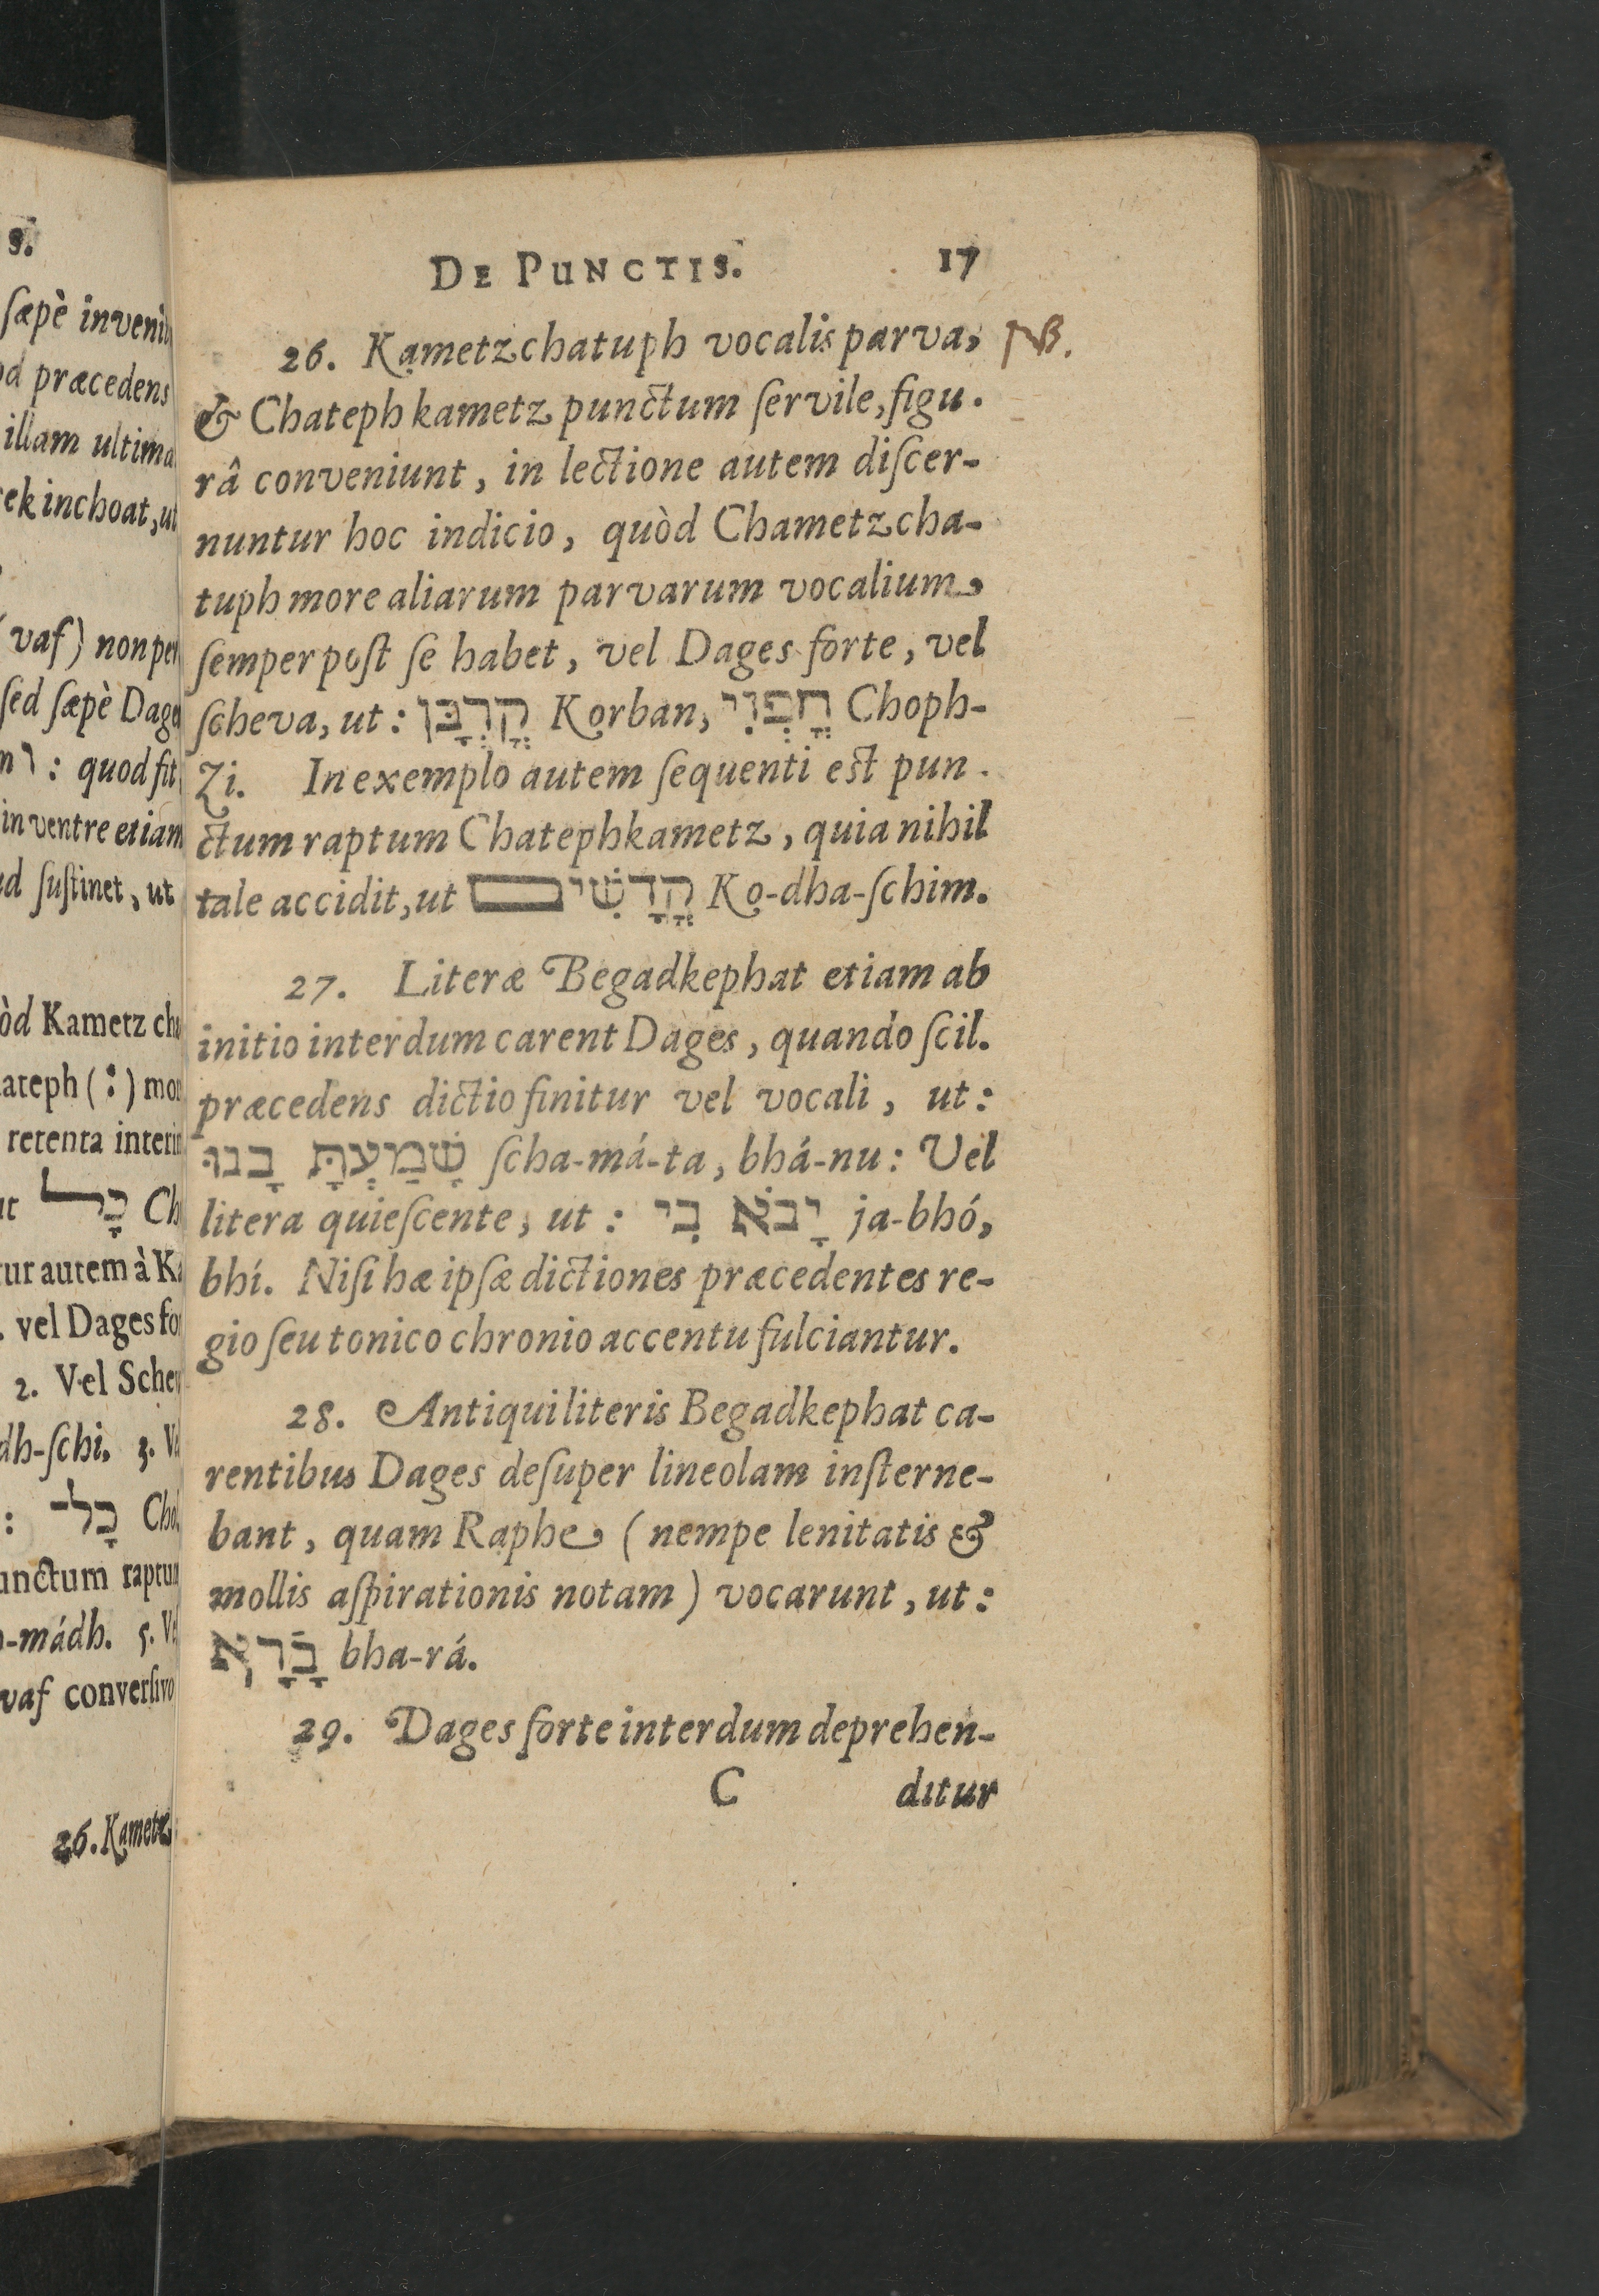 s.
sæpè inveni
od præcedens
illam ultima
ek inchoat, ut
vaſ) non per
ſed sæpè Dage
ו : quod fit
in ventre etiam
d ſuſtinet, ut
òd Kametz cha
ateph (:) mor
retenta interi
ut כָל Ch
ur autem à Ka
. vel Dages for
2. Vel Schev
dh-ſchi. 3. Ve
: כָל־ Chol
unctum raptum
-mádh. 5. Ve
vaſ converſivo
26. Kametz
DE PUNCTIS. 17
26. Kametzchatuph vocalis parva, NB.
& Chateph kametz punctum ſervile, figu.
râ conveniunt, in lectione autem diſcer-
nuntur hoc indicio, quòd Chametzcha-
tuph more aliarum parvarum vocalium
ſemper poſt ſe habet, vel Dages forte, vel
ſcheva, ut: קֳרְבָּן Korban, חֳפְזִי Choph-
zi. In exemplo autem ſequenti eſt pun.
ctum raptum Chatephkametz, quia nihil
tale accidit, ut קֳדָשִׁים Ko-dha-ſchim.
27. Literæ Begadkephat etiam ab
initio interdum carent Dages, quando ſcil.
præcedens dictio finitur vel vocali, ut:
שָׁמַעְתָּ בָנוּ ſcha-má-ta, bhá-nu: Vel
litera quieſcente, ut: יָבֹא בִי ja-bhó,
bhí. Niſi hæ ipſæ dictiones præcedentes re-
gio ſeu tonico chronio accentu fulciantur.
28. Antiqui literis Begadkephat ca-
rentibus Dages deſuper lineolam inſterne-
bant, quam Raphe (nempe lenitatis &
mollis aſpirationis notam) vocarunt, ut:
בָֿרָא bha-rá.
29. Dages forte interdum deprehen-
C ditur